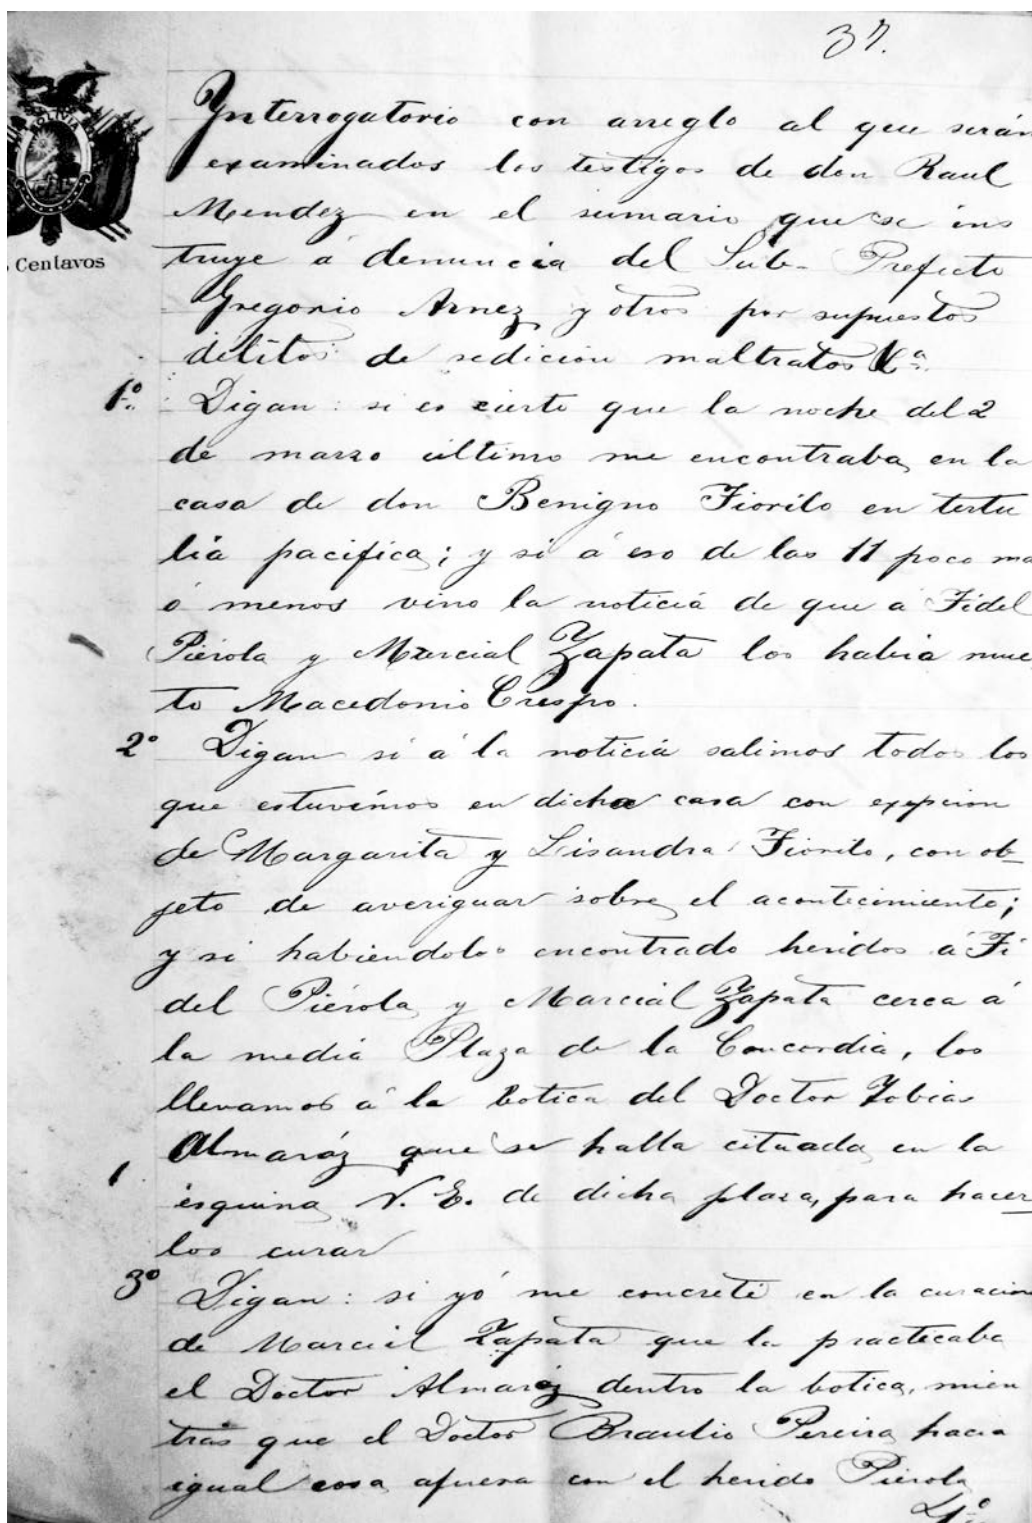 37.
BOLIVIA
Centavos
Ynterrogatorio con arreglo al que serán
examinados los testigos de don Raul
Mendez en el sumario que se ins
truye á denuncia del Sub- Prefecto
Gregorio Arnez y otros por supuestos
delitos de sedicion maltratos &ª
1º Digan: si es cierto que la noche del 2
de marzo último me encontraba en la
casa de don Benigno Fiorilo en tertu
lia pacifica; y si á eso de las 11 poco ma
ó menos vino la noticia de que á Fidel
Piérola y Marcial Zapata los habia mue
to Macedonio Crespo.
2º Digan si á la noticia salimos todos los
que estuvimos en dicha casa con exepcion
de Margarita y Lisandra Fiorilo, con ob-
jeto de averiguar sobre el acontecimiento;
y si habiendolos encontrado heridos á Fi
del Piérola y Marcial Zapata cerca á
la media Plaza de la Concordia, los
llevamos á la botica del Doctor Tobias
Almaráz que se halla cituada en la
esquina N. E. de dicha plasa, para hacer
los curar
3º Digan: si yó me concreté en la curacion
de Marcial Zapata que la practicaba
el Doctor Almaráz dentro la botica, mien
tras que el Doctor Braulio Pereira hacia
igual cosa afuera con el herido Piérola
4º